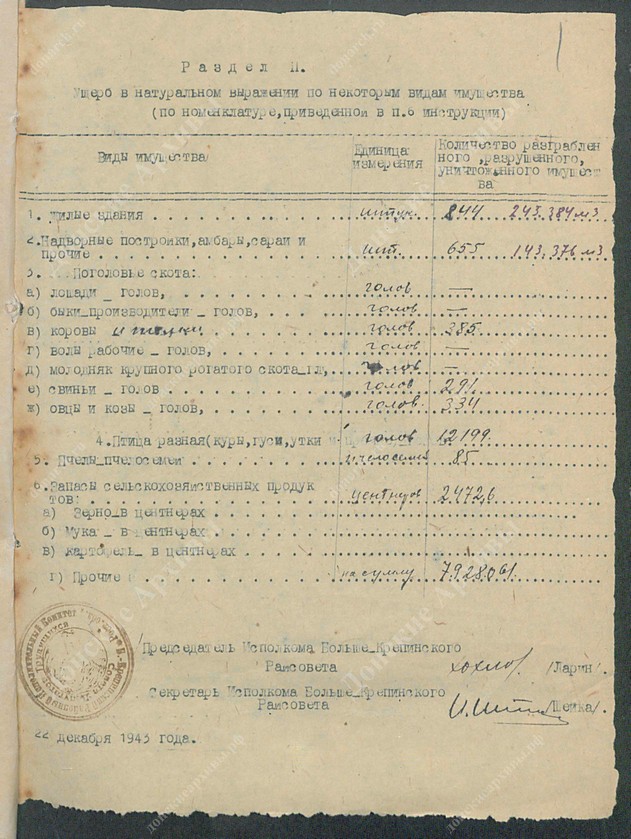 Раздел II.
Ущерб в натуральном выражении по некоторым видам имущества
(по номенклатуре,приведенной в п.6 инструкции)
Виды имущества
Единица
измерения
Количество разграблен
ного ,разрушенного,
уничтоженного имущест
ва
1. Жилые здания штук 844 243.384 м3
2.Надворные постройки,амбары,сараи и
прочие шт. 655 143,376 м3
3. Поголовье скота:
а) лошади _ голов, голов —
б) быки_производители _ голов, голов —
в) коровы и телки голов 385
г) волы рабочие _ голов, голов —
д) молодняк крупного рогатого скота_гл, голов —
е) свиньи _ голов голов 291
ж) овцы и козы _ голов, голов 334
4.Птица разная(куры,гуси,утки и голов 12199
5. Пчелы_пчелосемей пчелосемей 85
6.Запасы сельскохозяйственных продук
тов: центнеров 2472,6
а) Зерно_в центнерах
б) Мука _ в центнерах
в) картофель_ в центнерах
г) Прочие на сумму
Председатель Исполкома Больше_Крепинского
Райсовета /Ларин/.
Секретарь Исполкома Больше_Крепинского
Райсовета /Шейка/.
22 декабря 1943 года.